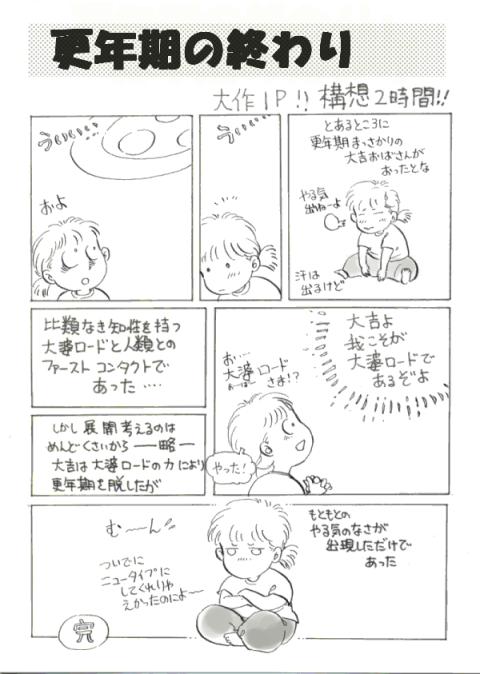 更年期の終わり
大作1P!! 構想2時間!!
とあるところに
更年期まっさかりの
大吉おばさんが
おったとな
やる気
出ねーよ
汗は
出るけど
うぃ
うぃぃぃ!!
およ
大吉よ
我こそが
大婆ロードで
あるぞよ
お…
大婆ロード
さま!?
比類なき知性を持つ
大婆ロードと人類との
ファーストコンタクトで
あった‥‥
しかし展開考えるのは
めんどくさいから――略―
大吉は大婆ロードの力により
更年期を脱したが
やった!
もともとの
やる気のなさが
出現しただけで
あった
む〜〜ん
ついでに
ニュータイプに
してくれりゃ
えかったのによ〜
完